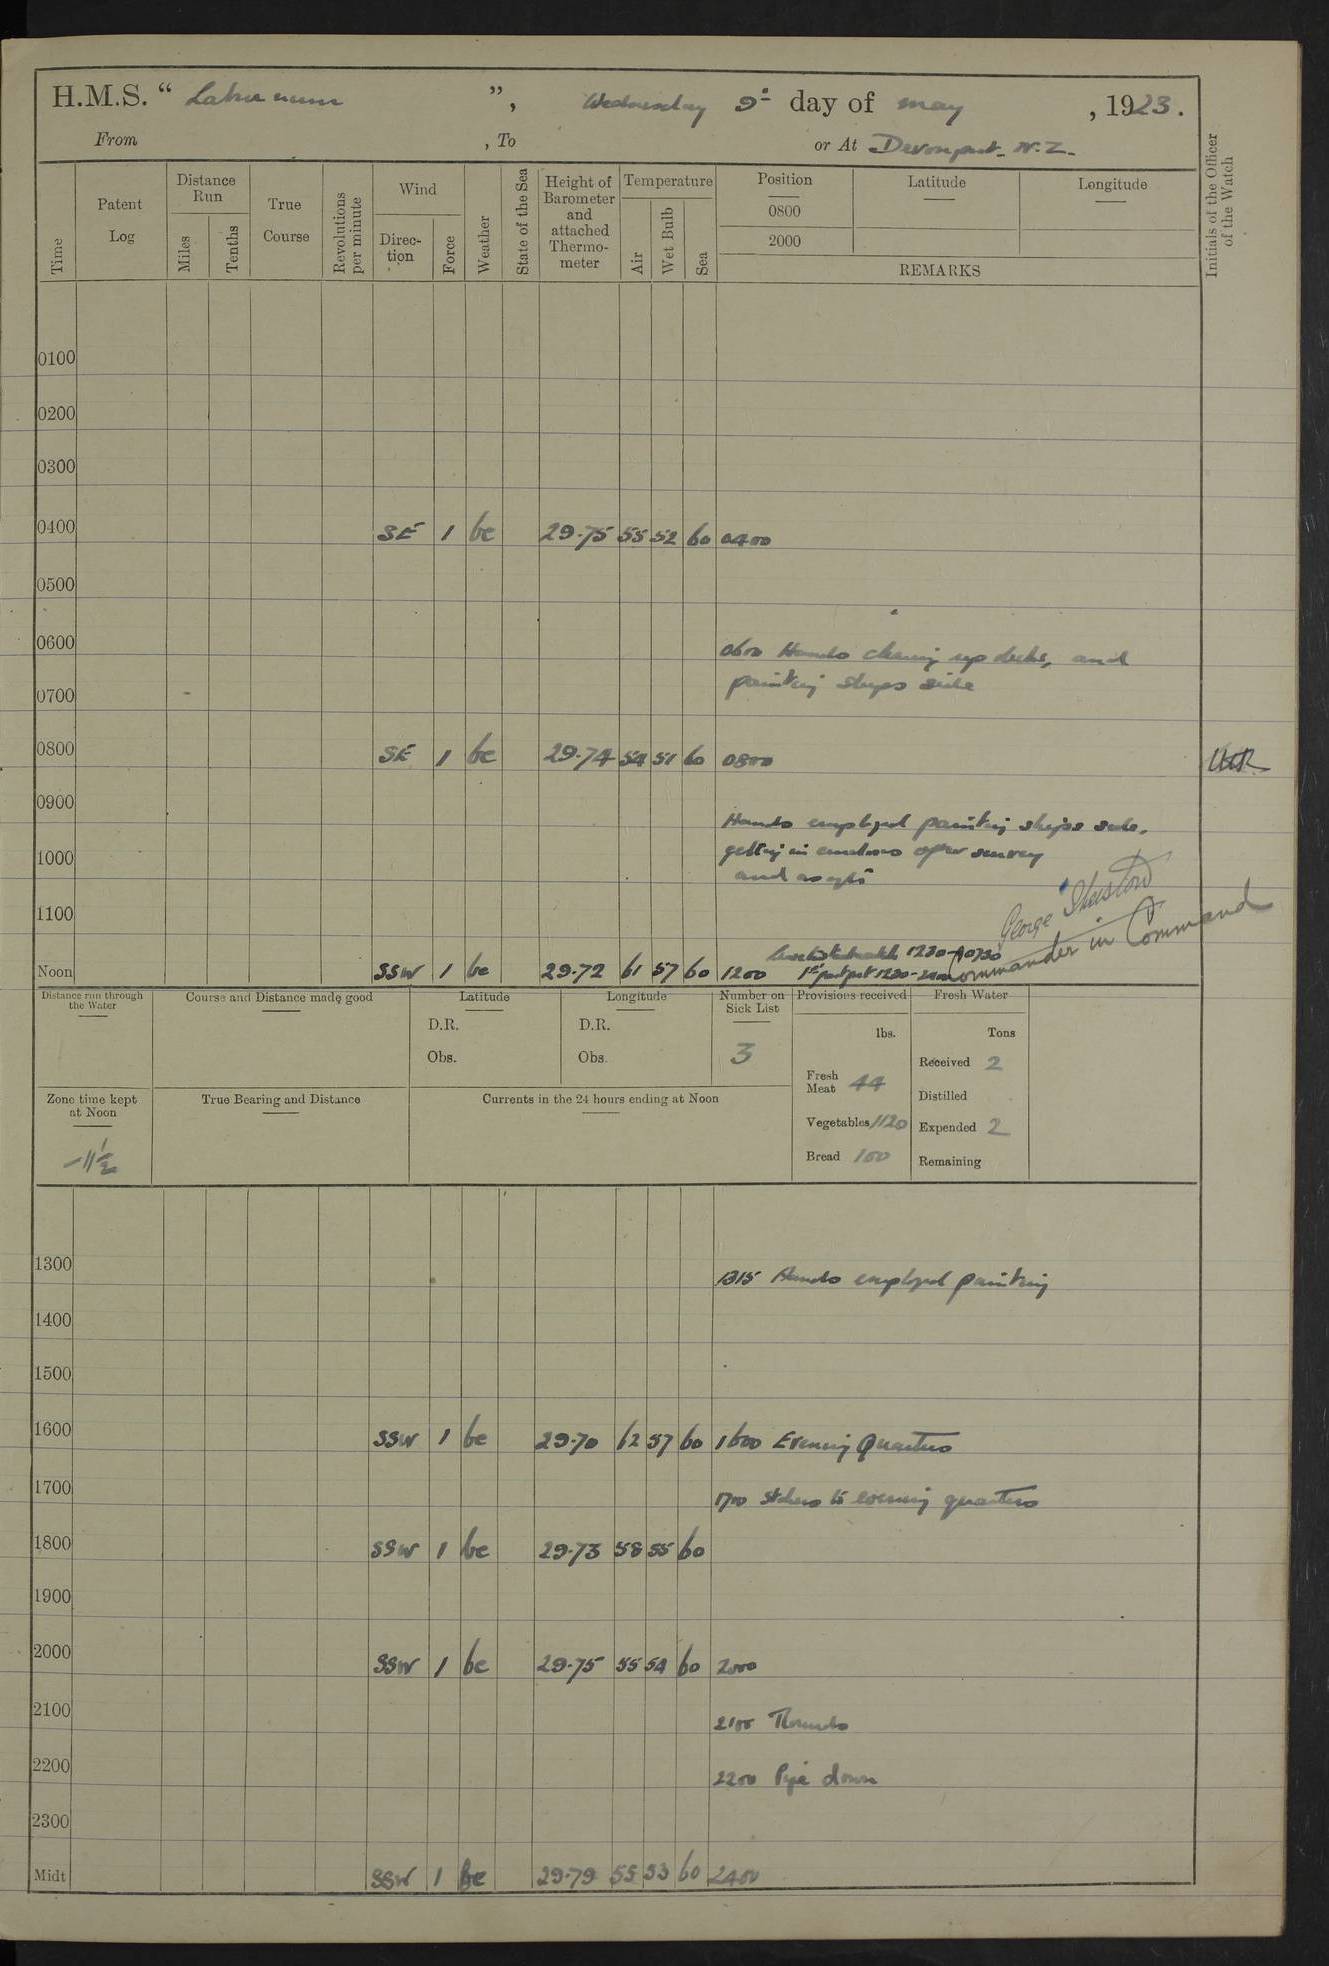 H.M.S. “ Laburnum ”, Wednesday 9th day of May , 1923.
From , To or At Devonport. N.Z.
Time
Patent Log
Distance Run
Miles
Tenths
True Course
Revolutions per minute
Wind
Direc-tion
Force
Weather
State of the Sea
Height of Barometer and attached Thermo-meter
Temperature
Air
Wet Bulb
Sea
Position
0800
2000
Latitude
Longitude
REMARKS
Initials of the Officer of the Watch
0100
0200
0300
0400 SE 1 bc 29.75 55 52 60 0400
0500
0600 0600 Hands cleaning up decks, and
painting ships side
0700
0800 SE 1 bc 29.74 54 51 60 0800
0900 Hands employed painting ships side,
1000 getting in after survey
and
1100 George
Commander in Command
1230 - 0730
Noon SSW 1 bc 29.72 61 57 60 1200 1st part 1230 -
Distance run through the Water
Course and Distance made good
Latitude
D.R.
Obs.
Longitude
D.R.
Obs.
Number on Sick List
3
Provisions received
lbs.
Fresh Meat 44
Vegetables 1120
Bread 100
Fresh Water
Tons
Received 2
Distilled
Expended 2
Remaining
Zone time kept at Noon
-11½
True Bearing and Distance
Currents in the 24 hours ending at Noon
1300 1315 Hands employed painting
1400
1500
1600 SSW 1 bc 29.70 62 57 60 1600 Evening Quarters
1700 1700 Stokers to evening quarters
1800 SSW 1 bc 29.73 58 55 60
1900
2000 SSW 1 bc 29.75 55 54 60 2000
2100 2100 Rounds
2200 2200 Pipe down
2300
Midt SSW 1 bc 29.79 55 53 60 2400